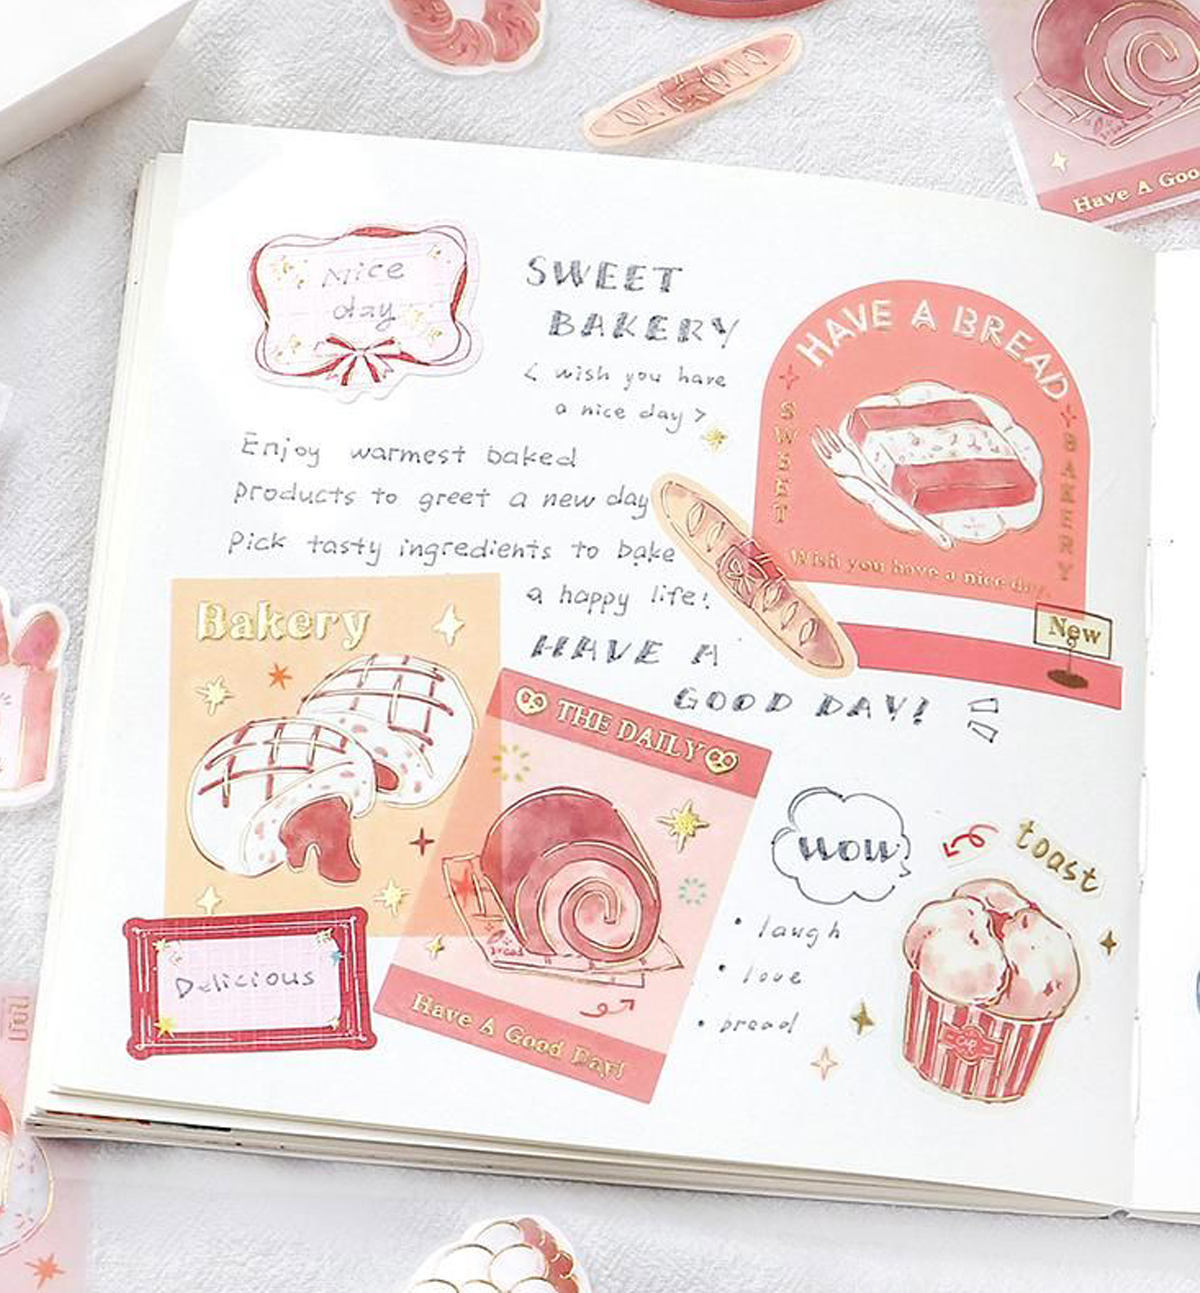 Have A Goo
Nice
day
SWEET
BAKERY
< wish you have
a nice day >
HAVE A BREAD
SWEET
BAKERY
Wish you have a nice day.
Enjoy warmest baked
products to greet a new day
Pick tasty ingredients to bake
a happy life!
HAVE A
GOOD DAY!
New
Bakery
THE DAILY
bread
Have A Good Day!
Delicious
wow
toast
• laugh
• love
• bread
cup